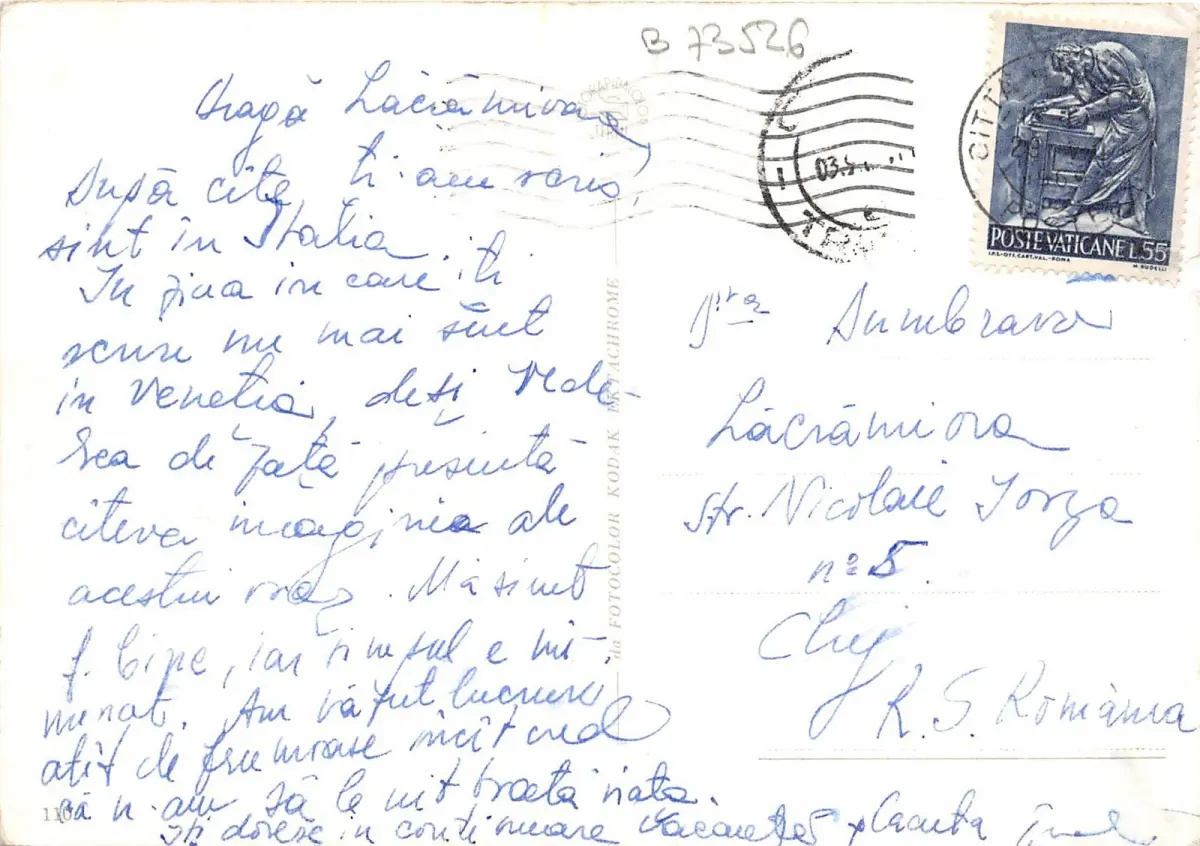 B 73526
Dragă Lăcrămioara,
După cîte ți-am scris,
sînt în Italia.
În ziua în care îți
scriu nu mai sînt
în Veneția, deși vede-
rea de față prezintă
cîteva imaginea ale
acestui oraș. Mă simt
f. bine, iar timpul e mi-
nunat. Am văzut lucruri
atît de frumoase încît cred
că n-am să le uit toată viața.
Îți doresc în continuare vacanță plăcută
110
da FOTOCOLOR KODAK EKTACHROME
POSTE VATICANE L.55
I.P.S.-OFF. CART. VAL.-ROMA
M. RUDELLI
CITTA
29
03.
D-ra Dumbrava
Lăcrămiora
str. Nicolaie Iorga
nº 5.
Cluj
R. S. România